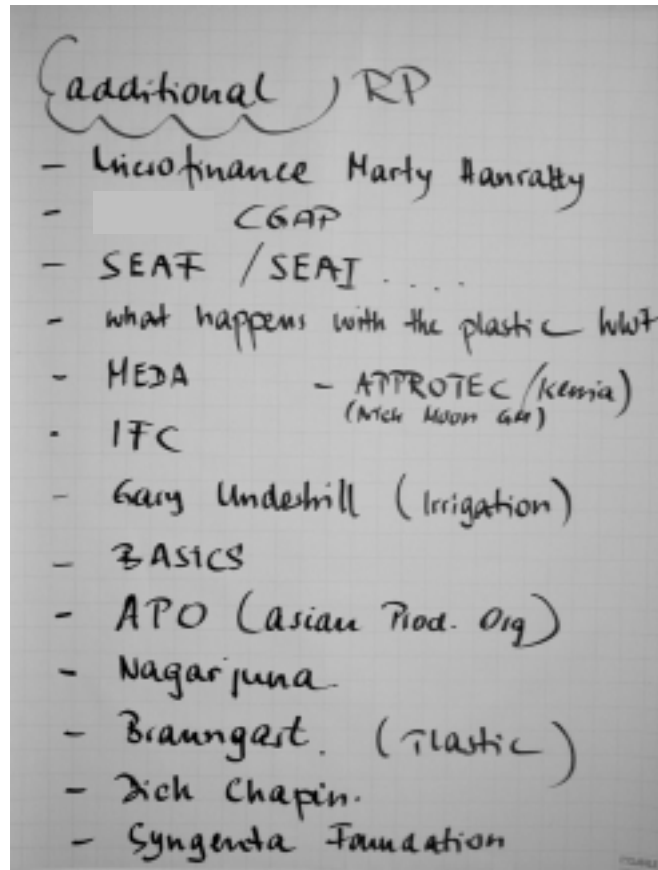 {additional } RP
- Microfinance Marty Hanratty
- CGAP
- SEAF / SEAI ....
- what happens with the plastic WWF
- MEDA - APPROTEC (Kenia)
(Nick Moon GM)
- IFC
- Gary Undeshill (Irrigation)
- BASICS
- APO (asian Prod. Org)
- Nagarjuna.
- Braungart. (Plastic)
- Dick Chapin.
- Syngenta Foundation